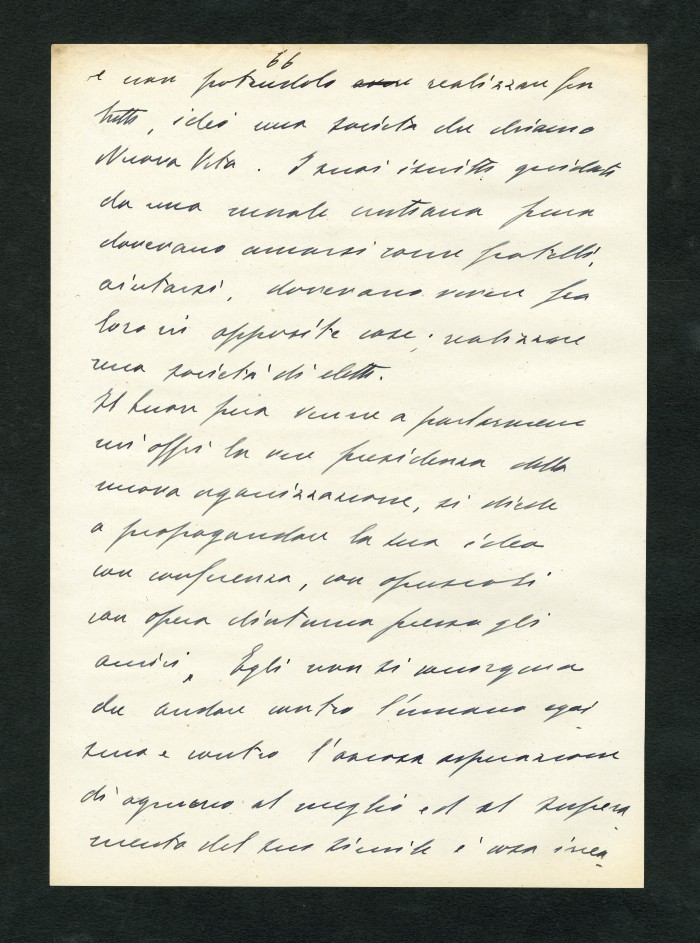 66
e non potendola realizzare per
tutti, ideò una società che chiamò
Nuova Vita. I suoi iscritti guidati
da una morale cristiana pura
dovevano amarsi come fratelli,
aiutarsi, dovevano vivere fra
loro in apposite case; realizzare
una società di eletti.
Il buon venne a parlarmene
mi offrì la vice presidenza della
nuova organizzazione, si diede
a propagandare la sua idea
con conferenza, con opuscoli
con opera diuturna presso gli
amici. Egli non si accorgeva
che andare contro l'umano egoi
smo e contro l'ansiosa aspirazione
di ognuno al meglio ed al supera
mento del suo simile è cosa